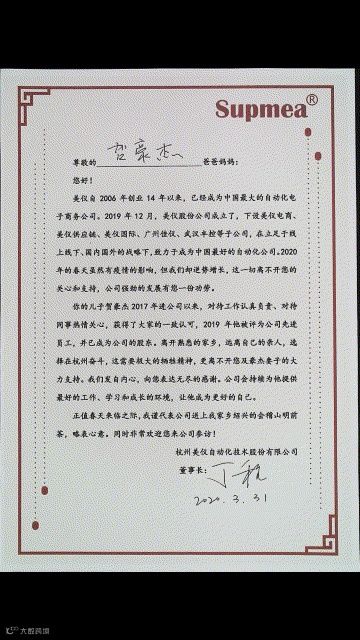 Supmea®
尊敬的 贺豪杰 爸爸妈妈：
您好！
美仪自 2006 年创业 14 年以来，已经成为中国最大的自动化电
子商务公司。2019 年 12 月，美仪股份公司成立了，下设美仪电商、
美仪供应链、美仪国际、广州佳仪、武汉丰控等子公司，在立足于线
上线下、国内国外的战略下，致力于成为中国最好的自动化公司。2020
年的春天虽然有疫情的影响，但我们却逆势增长，这一切离不开您的
关心和支持，公司强劲的发展有您一份功劳。
你的儿子贺豪杰 2017 年进公司以来，对待工作认真负责、对待
同事热情关心，获得了大家的一致认可，2019 年他被评为公司先进
员工，并已成为公司的股东。离开熟悉的家乡，远离自己的亲人，选
择在杭州奋斗，这需要极大的牺牲精神，更离不开您及豪杰妻子的大
力支持。我们发自内心，向您表达无尽的感谢。公司会持续为他提供
最好的工作、学习和成长的环境，让他成为更好的自己。
正值春天来临之际，我谨代表公司送上我家乡绍兴的会稽山明前
茶，略表心意。同时非常欢迎您来公司参访！
杭州美仪自动化技术股份有限公司
董事长：丁程
2020.3.31
大数跨境